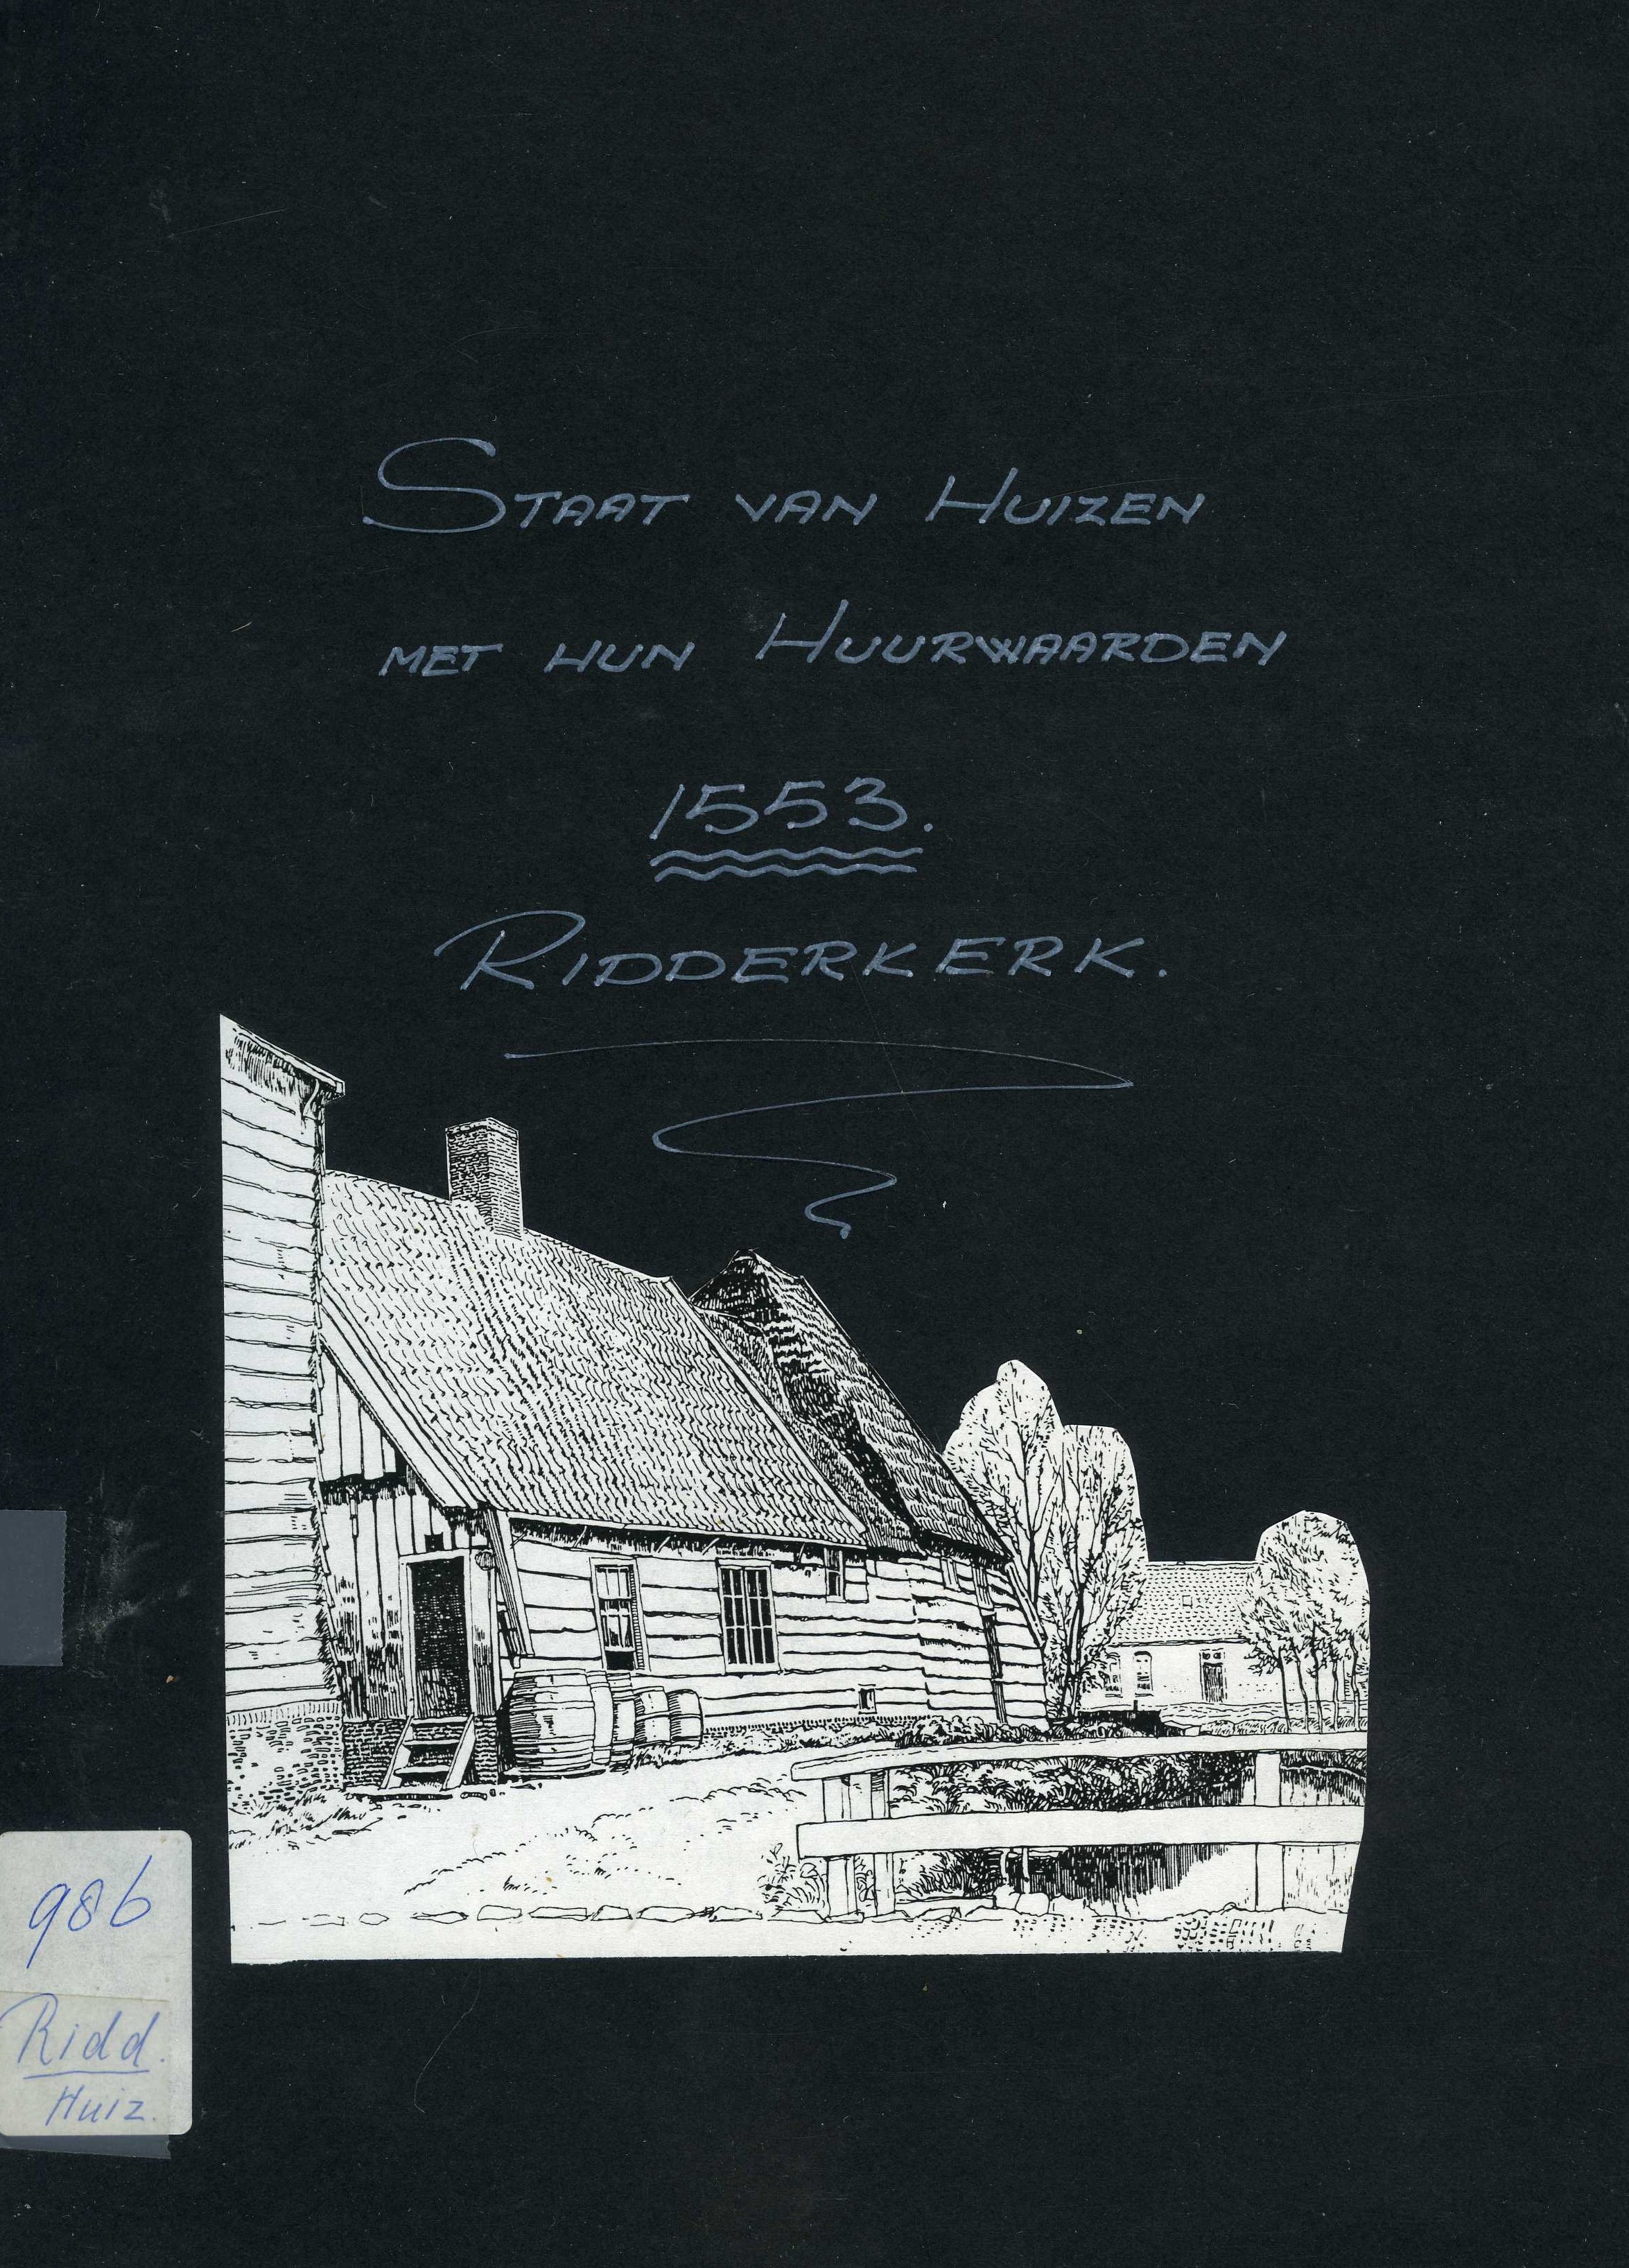 STAAT VAN HUIZEN
MET HUN HUURWAARDEN
1553.
RIDDERKERK.
986
Ridd.
Huiz.